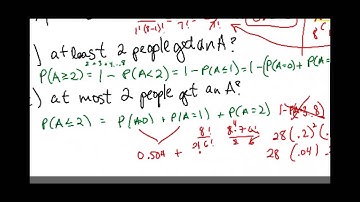 1!(8-1)! 7!
) at least 2 people get an A?
2=3+4...8
P(A≥2) = 1 - P(A<2) = 1 - P(A≤1) = 1-(P(A=0) + P(A=
) at most 2 people get an A?
P(A≤2) = P(A=0) + P(A=1) + P(A=2)
0.504 + 8!/2!6! 8·7·6!/2 6 28(.2)²(.
28 (.04)